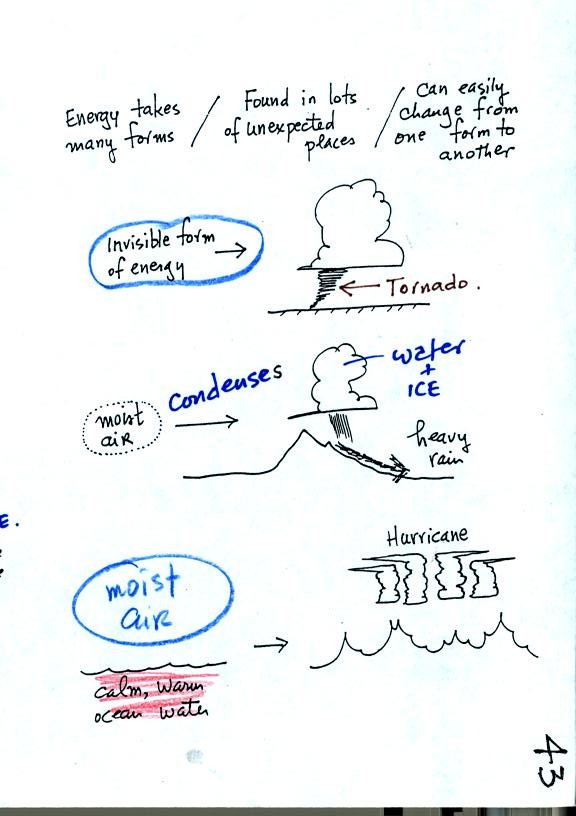 Energy takes
many forms
/
Found in lots
of unexpected
places
/
Can easily
change from
one form to
another
Invisible form
of energy
Tornado.
condenses
water
+
ICE
moist
air
heavy
rain
E.
Hurricane
moist
air
calm, warm
ocean water
43